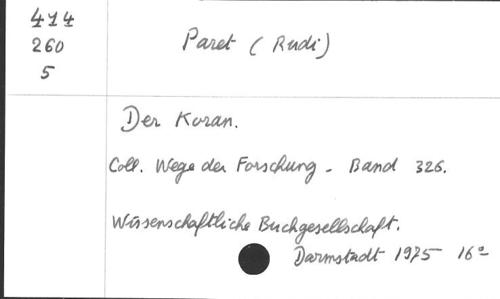 414
260
5
Paret (Rudi)
Der Koran.
Coll. Wege der Forschung - Band 326.
Wissenschaftliche Buchgesellschaft.
Darmstadt 1975 16°